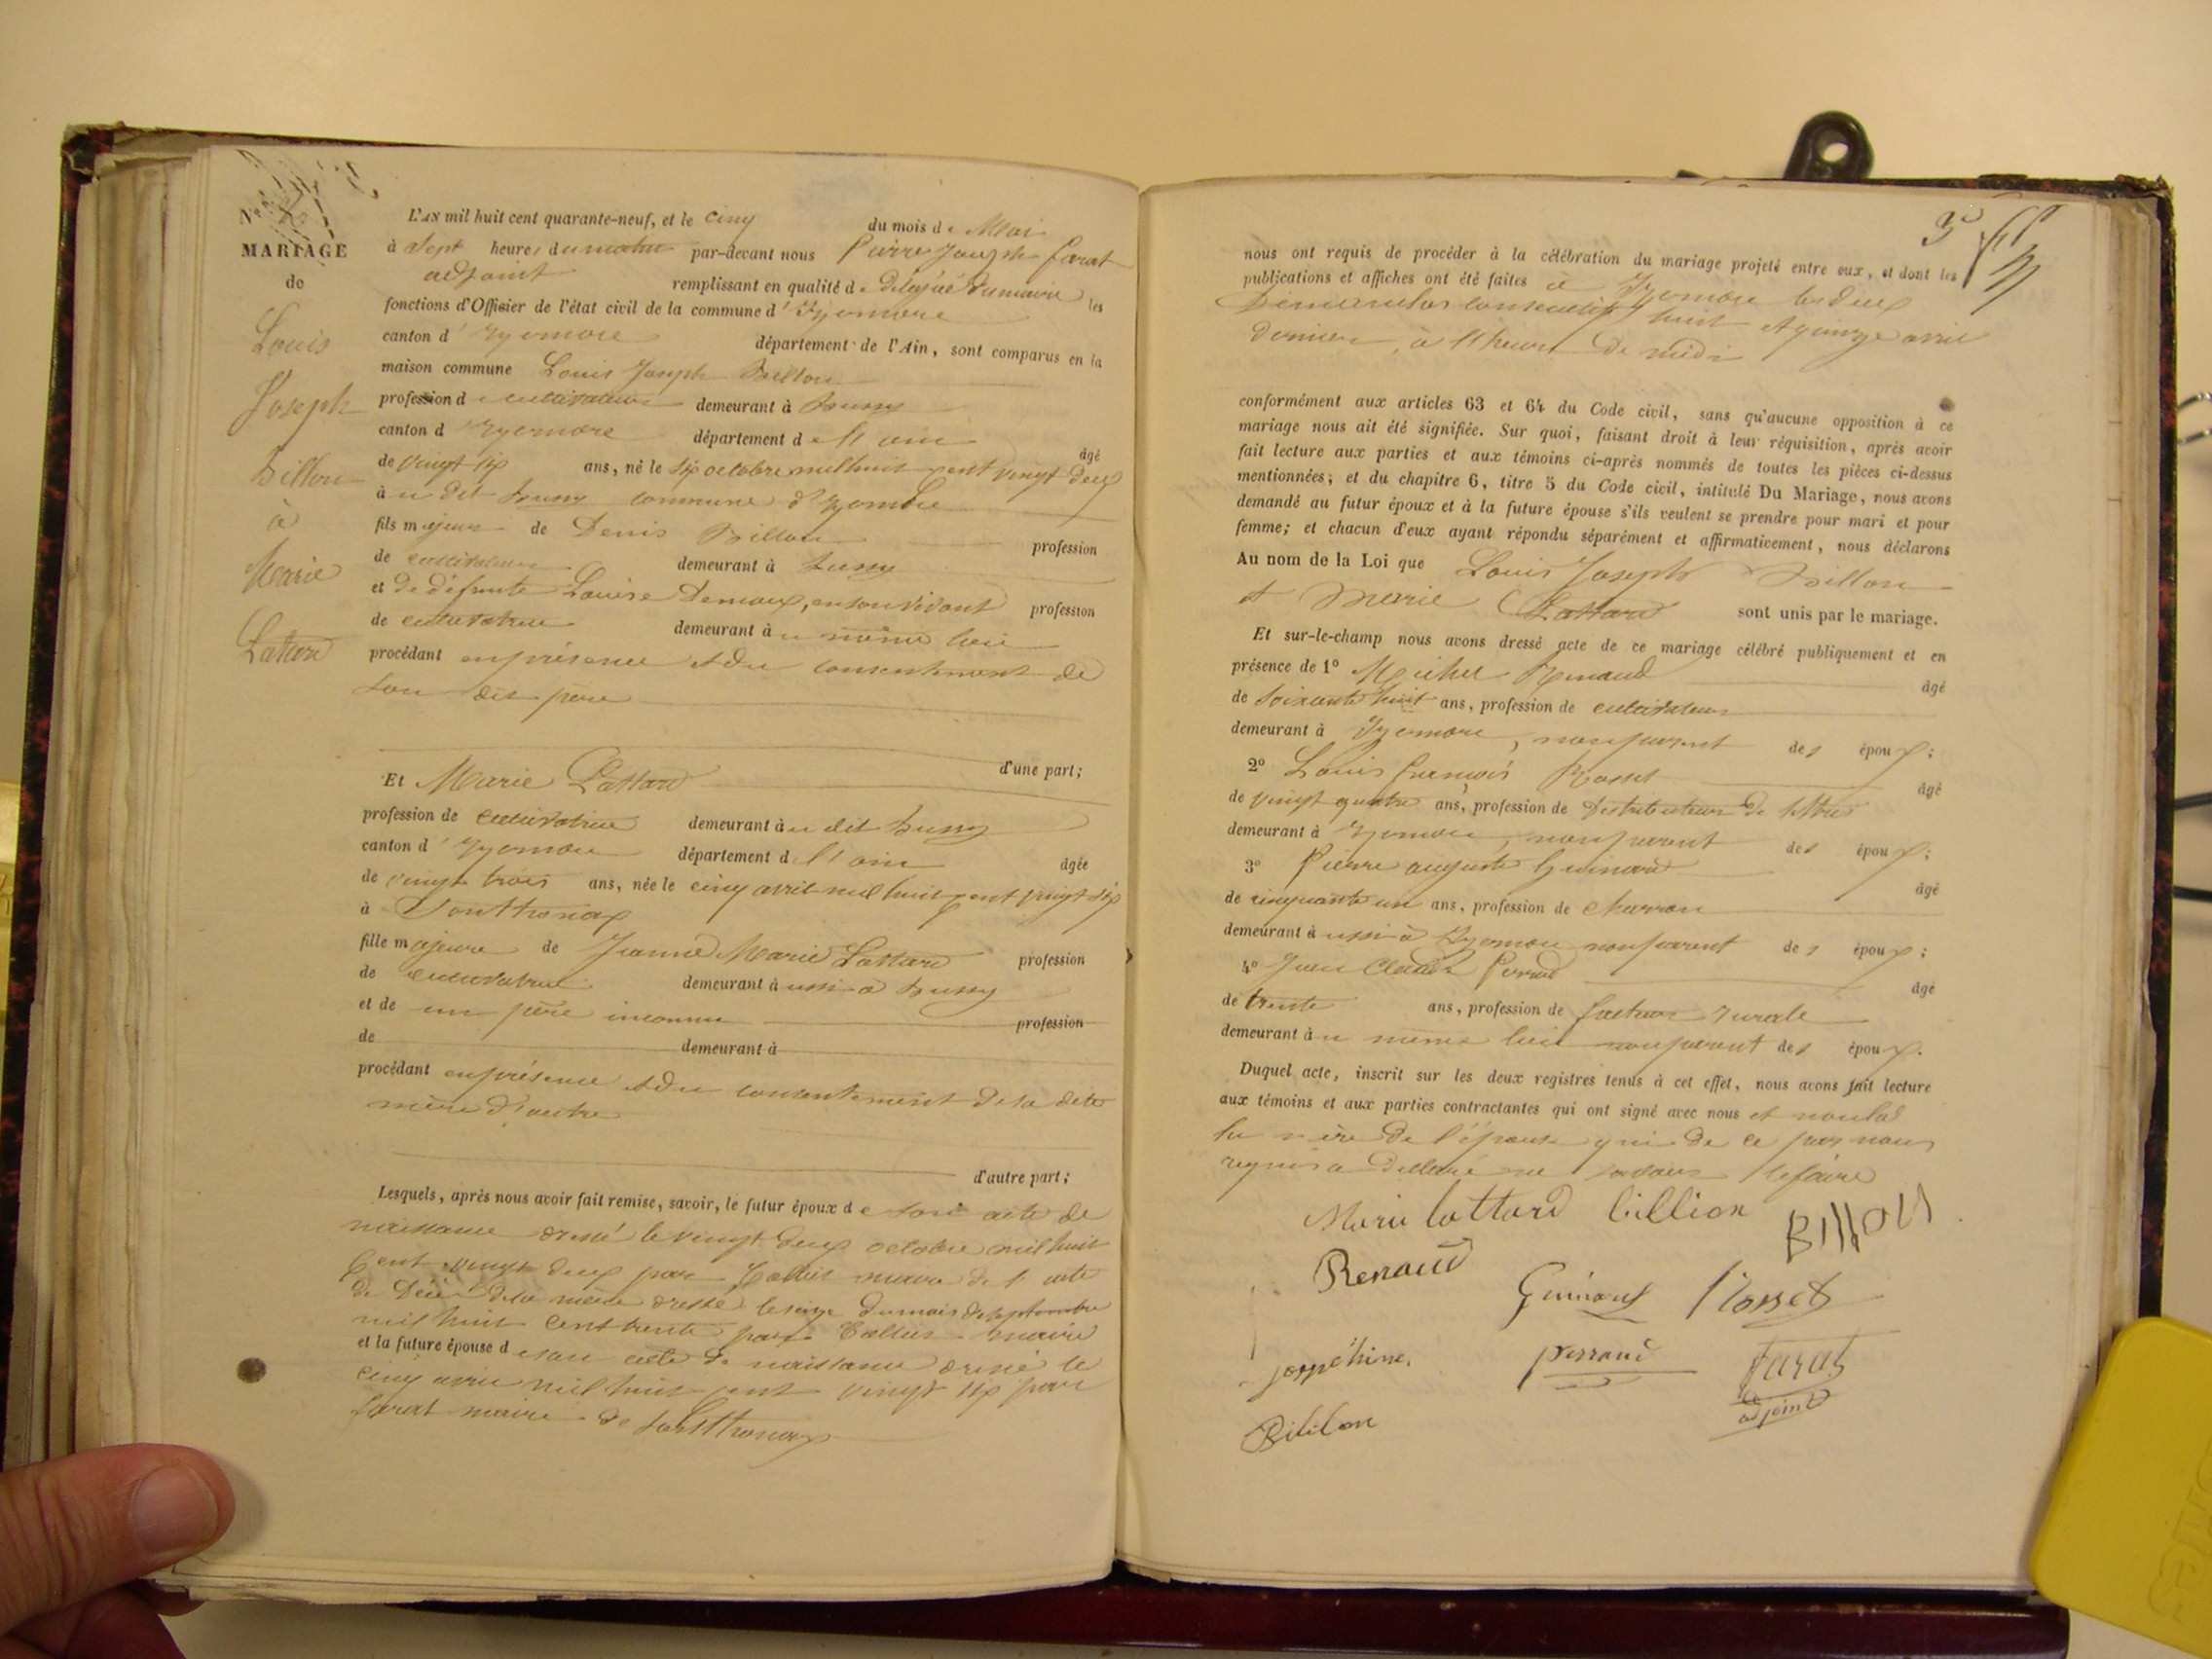 N°
MARIAGE
de
Louis
Joseph
Billon
à
Marie
Lattard
L'AN mil huit cent quarante-neuf, et le cinq du mois de Mai
à Sept heures du matin par-devant nous Pierre Joseph Farat
adjoint remplissant en qualité de Délégué du maire les
fonctions d'Officier de l'état civil de la commune d'Izernore
canton d'Izernore département de l'Ain, sont comparus en la
maison commune Louis Joseph Billon
profession de cultivateur demeurant à Bussy
canton d'Izernore département de l'ain âgé
de vingt six ans, né le six octobre mil huit cent vingt deux
à u dit Bussy commune d'Izernore
fils majeur de Denis Billon profession
de cultivateur demeurant à Bussy
et de défunte Louise, en son vivant profession
de cultivatrice demeurant à u même lieu
procédant en présence et du consentement de
son dit père
d'une part;
Et Marie Lattard
profession de cultivatrice demeurant à u dit Bussy
canton d'Izernore département de l'ain âgée
de vingt trois ans, née le cinq avril mil huit cent vingt six
à Sonthonax
fille majeure de Jeanne Marie Lattard profession
de cultivatrice demeurant à ussi à Bussy
et de un père inconnu profession
de demeurant à
procédant en présence et du consentement de sa dite
mère d'autre
d'autre part;
Lesquels, après nous avoir fait remise, savoir, le futur époux de son acte de
naissance dressé le vingt deux octobre mil huit
cent vingt deux par maire de l'acte
de Décès de sa mère dressé le seize du mois de septembre
mil huit cent trente par maire
et la future épouse de son acte de naissance dressé le
cinq avril mil huit cent vingt six par
Farat maire de Sonthonax
nous ont requis de procéder à la célébration du mariage projeté entre eux, et dont les
publications et affiches ont été faites à Izernore les deux
Dimanches consécutifs huit et quinze avril
dernier, à l'heure de midi
conformément aux articles 63 et 64 du Code civil, sans qu'aucune opposition à ce
mariage nous ait été signifiée. Sur quoi, faisant droit à leur réquisition, après avoir
fait lecture aux parties et aux témoins ci-après nommés de toutes les pièces ci-dessus
mentionnées; et du chapitre 6, titre 5 du Code civil, intitulé Du Mariage, nous avons
demandé au futur époux et à la future épouse s'ils veulent se prendre pour mari et pour
femme; et chacun d'eux ayant répondu séparément et affirmativement, nous déclarons
Au nom de la Loi que Louis Joseph Billon
et Marie Lattard sont unis par le mariage.
Et sur-le-champ nous avons dressé acte de ce mariage célébré publiquement et en
présence de 1° Michel Renaud âgé
de soixante huit ans, profession de cultivateur
demeurant à Izernore, non parent des époux;
2° Louis François Rosset âgé
de vingt quatre ans, profession de Distributeur de lettres
demeurant à Izernore, non parent des époux;
3° Pierre auguste Guinard âgé
de cinquante un ans, profession de charron
demeurant à ussi à Izernore non parent des époux;
4° Jean Claude Perraud âgé
de trente ans, profession de facteur rurale
demeurant à u même lieu non parent des époux.
Duquel acte, inscrit sur les deux registres tenus à cet effet, nous avons fait lecture
aux témoins et aux parties contractantes qui ont signé avec nous et non pas
la mère de l'épouse qui de ce par nous
requis a déclaré ne savoir le faire
Marie lattard billion BIllON
Renaud
Guinard Rosset
josephine perraud Farat
adjoint
Billon